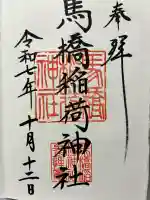 奉拝
馬橋稲荷神社
令和七年 十月十二日